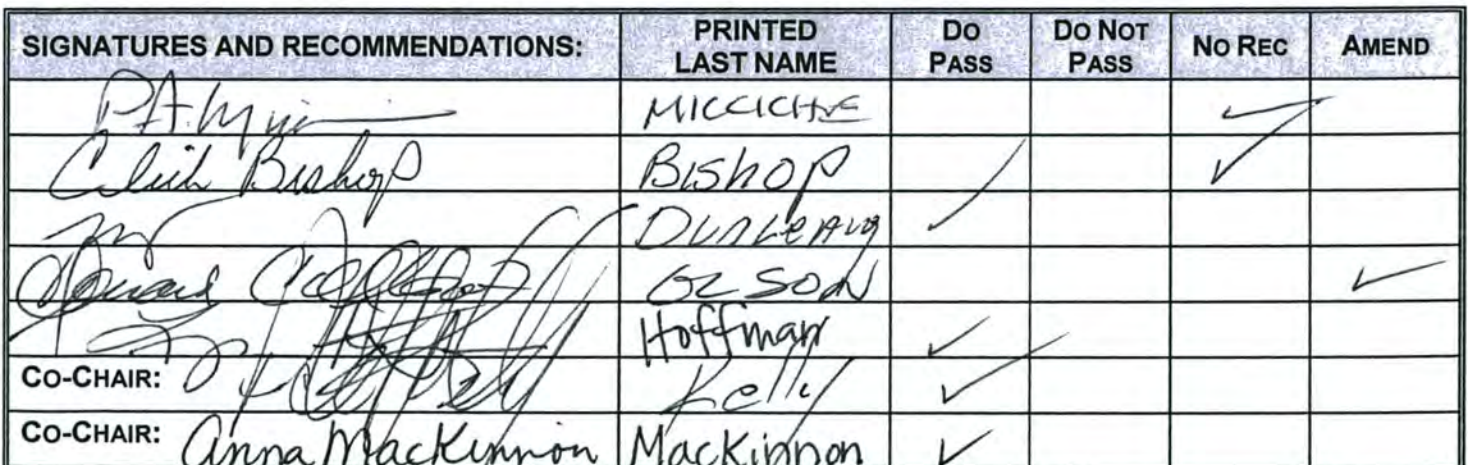 SIGNATURES AND RECOMMENDATIONS: PRINTED LAST NAME DO PASS DO NOT PASS NO REC AMEND
MICCICHE ✓
Click Bishop BISHOP ✓
DUNLEAVY ✓
OLSON ✓
Hoffman ✓
CO-CHAIR: Kelly ✓
CO-CHAIR: Anna MacKinnon MacKinnon ✓